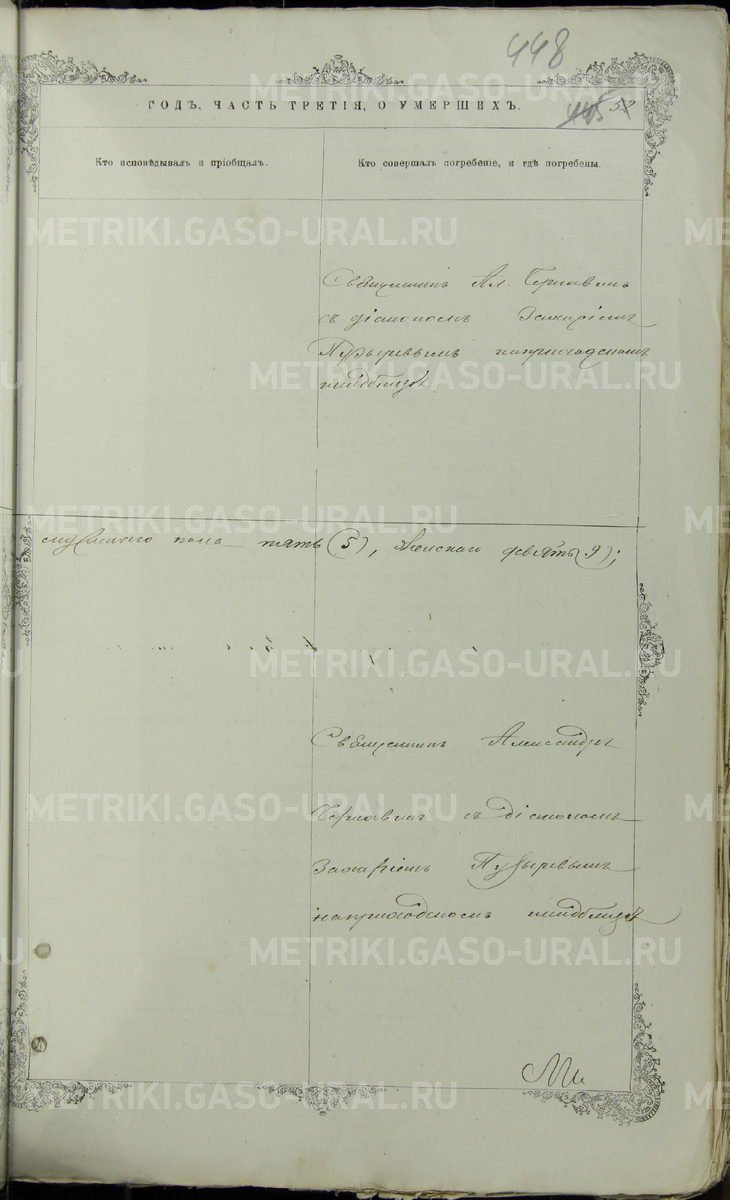 448
ГОДЪ, ЧАСТЬ ТРЕТІЯ, О УМЕРШИХЪ.
445
Кто исповѣдывалъ и пріобщалъ.
Кто совершалъ погребеніе, и гдѣ погребены.
Священникъ Ал.
съ діакономъ Захаріемъ
Пузыревымъ на приходскомъ
кладбищѣ
мужскаго пола пять (5), женскаго девять (9);
Священникъ Александръ
съ діакономъ
Захаріемъ Пузыревымъ
на приходскомъ кладбищѣ
METRIKI.GASO-URAL.RU